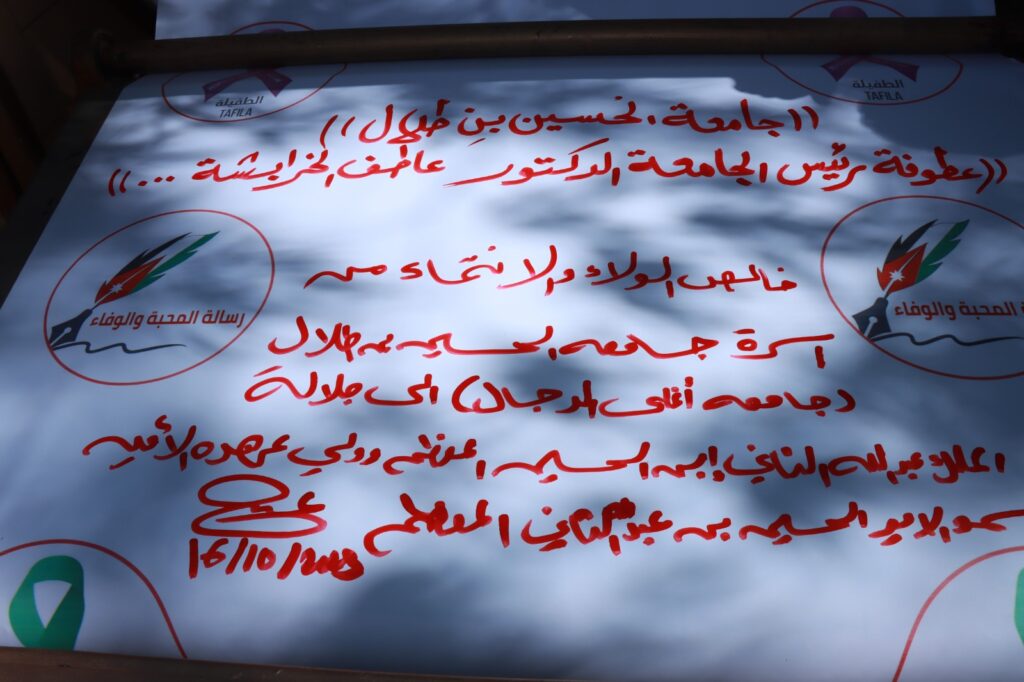 الطفيلة
TAFILA
الطفيلة
TAFILA
((جامعة الحسين بن طلال))
((عطوفة رئيس الجامعة الدكتور عاطف الخرابشة ...))
رسالة المحبة والوفاء
ة المحبة والوفاء
خالص الولاء والانتماء من
اسرة جامعه الحسين بن طلال
(جامعه أغلى الرجال) الى جلالة
الملك عبدالله الثاني إبن الحسين المعظم وولي عهده الأمين
سمو الامير الحسين بن عبدالله الثاني المعظم
16/10/2023